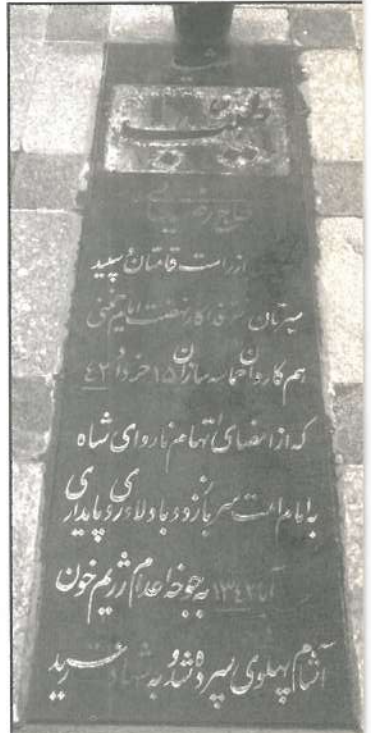 شهید
طیب
حاج رضایی
از راست قامتان و سپید
سیرتان فداکار نهضت امام خمینی
هم کاروان حماسه سازان ۱۵ خرداد ۴۲
که از امضای اتهام ناروای شاه
به امام امت سر باز زد و با دلاوری و پایداری
آبان ۱۳۴۲ به جوخه اعدام رژیم خون
آشام پهلوی سپرده شد و به شهادت رسید